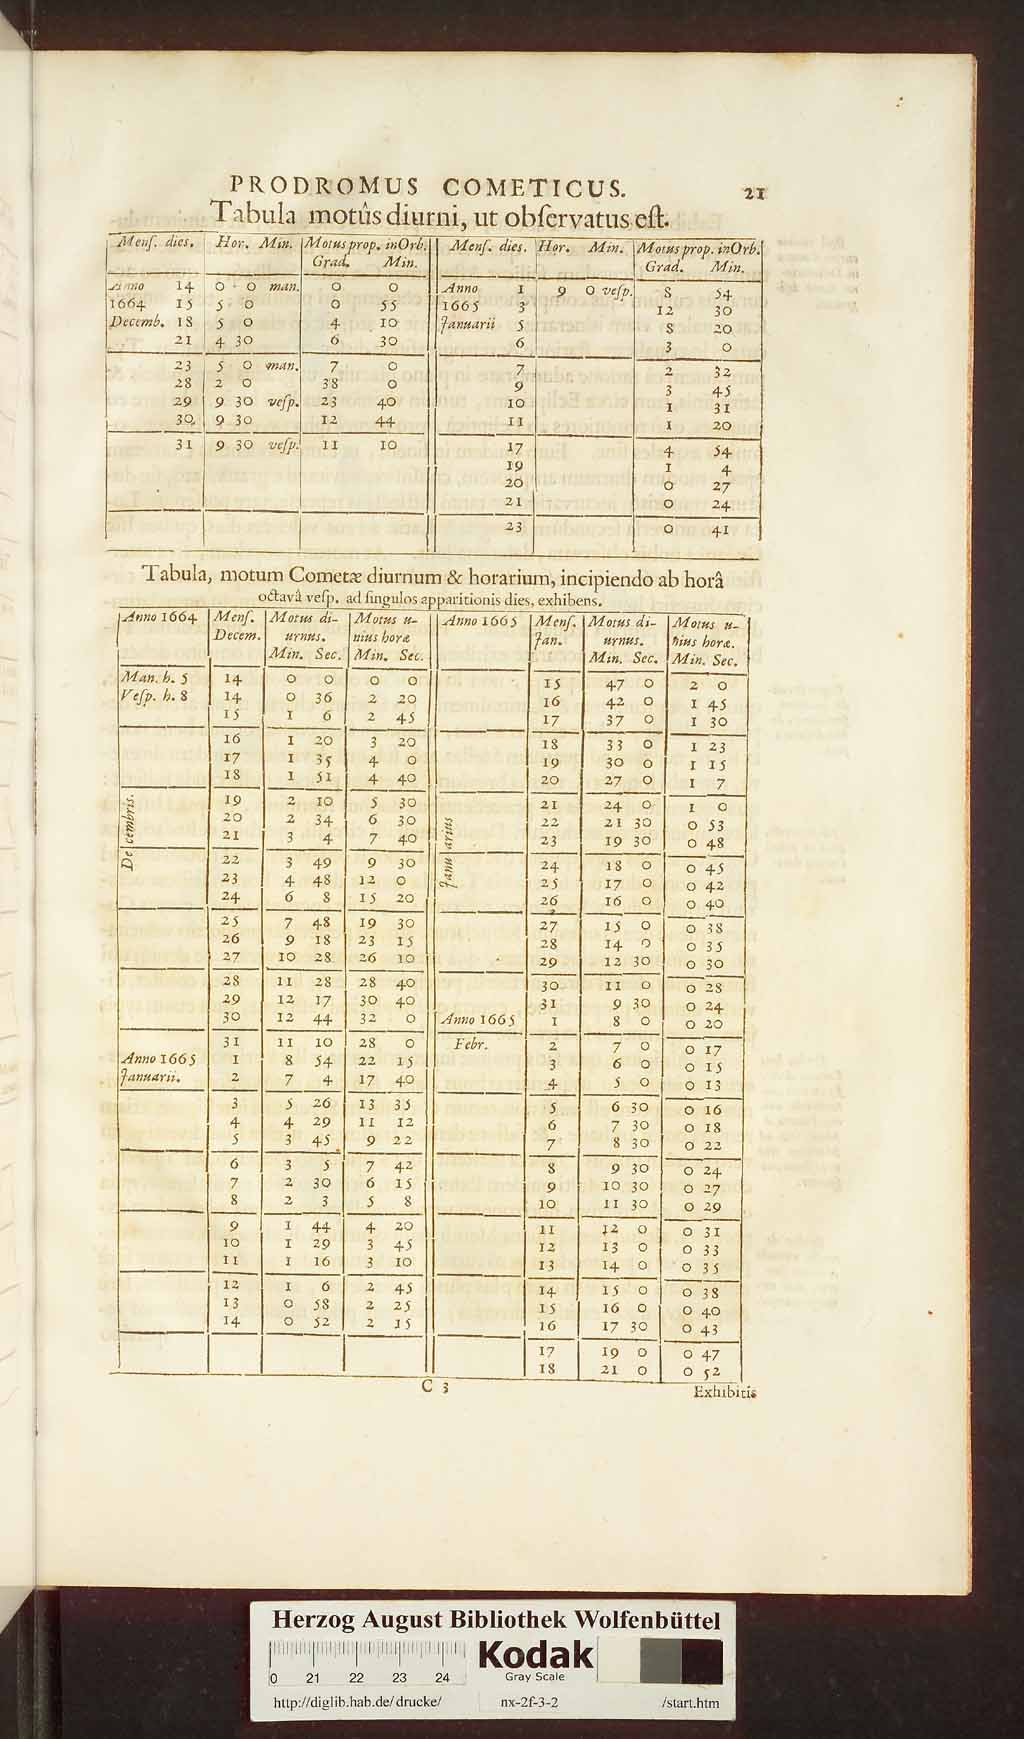 PRODROMUS COMETICUS. 21
Tabula motûs diurni, ut observatus est.
Mens. dies. Hor. Min. Motus prop. in Orb. Mens. dies. Hor. Min. Motus prop. in Orb.
Grad. Min. Grad. Min.
Anno 14 0 0 man. 0 0 Anno 1 9 0 vesp. 8 54
1664 15 5 0 0 55 1665 3 12 30
Decemb. 18 5 0 4 10 Januarii 5 8 20
21 4 30 6 30 6 3 0
23 5 0 man. 7 0 7 2 32
28 2 0 38 0 9 3 45
29 9 30 vesp. 23 40 10 1 31
30 9 30 12 44 11 1 20
31 9 30 vesp. 11 10 17 4 54
19 1 4
20 0 27
21 0 24
23 0 41
Tabula, motum Cometæ diurnum & horarium, incipiendo ab horâ
octavâ vesp. ad singulos apparitionis dies, exhibens.
Anno 1664 Mens. Motus di- Motus u- Anno 1665 Mens. Motus di- Motus u-
Decem. urnus. nius horæ Jan. urnus. nius horæ.
Min. Sec. Min. Sec. Min. Sec. Min. Sec.
Man. h. 5 14 0 0 0 0 15 47 0 2 0
Vesp. h. 8 14 0 36 2 20 16 42 0 1 45
15 1 6 2 45 17 37 0 1 30
16 1 20 3 20 18 33 0 1 23
17 1 35 4 0 19 30 0 1 15
18 1 51 4 40 20 27 0 1 7
Decembris. 19 2 10 5 30 Januarius 21 24 0 1 0
20 2 34 6 30 22 21 30 0 53
21 3 4 7 40 23 19 30 0 48
22 3 49 9 30 24 18 0 0 45
23 4 48 12 0 25 17 0 0 42
24 6 8 15 20 26 16 0 0 40
25 7 48 19 30 27 15 0 0 38
26 9 18 23 15 28 14 0 0 35
27 10 28 26 10 29 12 30 0 30
28 11 28 28 40 30 11 0 0 28
29 12 17 30 40 31 9 30 0 24
30 12 44 32 0 Anno 1665 1 8 0 0 20
31 11 10 28 0 Febr. 2 7 0 0 17
Anno 1665 1 8 54 22 15 3 6 0 0 15
Januarii. 2 7 4 17 40 4 5 0 0 13
3 5 26 13 35 5 6 30 0 16
4 4 29 11 12 6 7 30 0 18
5 3 45 9 22 7 8 30 0 22
6 3 5 7 42 8 9 30 0 24
7 2 30 6 15 9 10 30 0 27
8 2 3 5 8 10 11 30 0 29
9 1 44 4 20 11 12 0 0 31
10 1 29 3 45 12 13 0 0 33
11 1 16 3 10 13 14 0 0 35
12 1 6 2 45 14 15 0 0 38
13 0 58 2 25 15 16 0 0 40
14 0 52 2 15 16 17 30 0 43
17 19 0 0 47
18 21 0 0 52
C 3 Exhibitis
Herzog August Bibliothek Wolfenbüttel
0 21 22 23 24
Kodak
Gray Scale
http://diglib.hab.de/drucke/ nx-2f-3-2 /start.htm